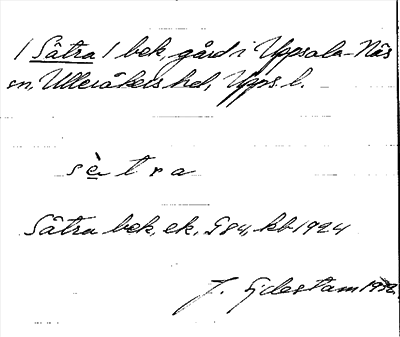 / Sätra / bek, gård i Uppsala-Näs
sn, Ulleråkers hd, Upps. l.
sè t r a
Sätra bek, ek, G84, kb 1924
J. Gjlestam 1932